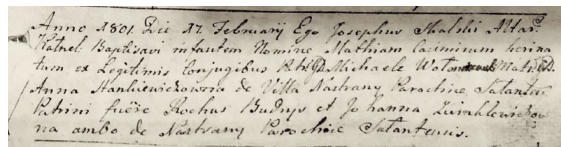 Anno 1801 Die 17. Februarij Ego Josephus Skalski Altar.
Baptisavi infantem Nomine Mathiam Casimirum heri na
tum ex Legitimis Conjugibus Michaele
Anna Stankiewiczowna de Villa Nastrany Parochiæ Satanten
Patrini fuére Rochus Budrys et Johanna
na ambo de Nastrany Parochiæ Satantensis.